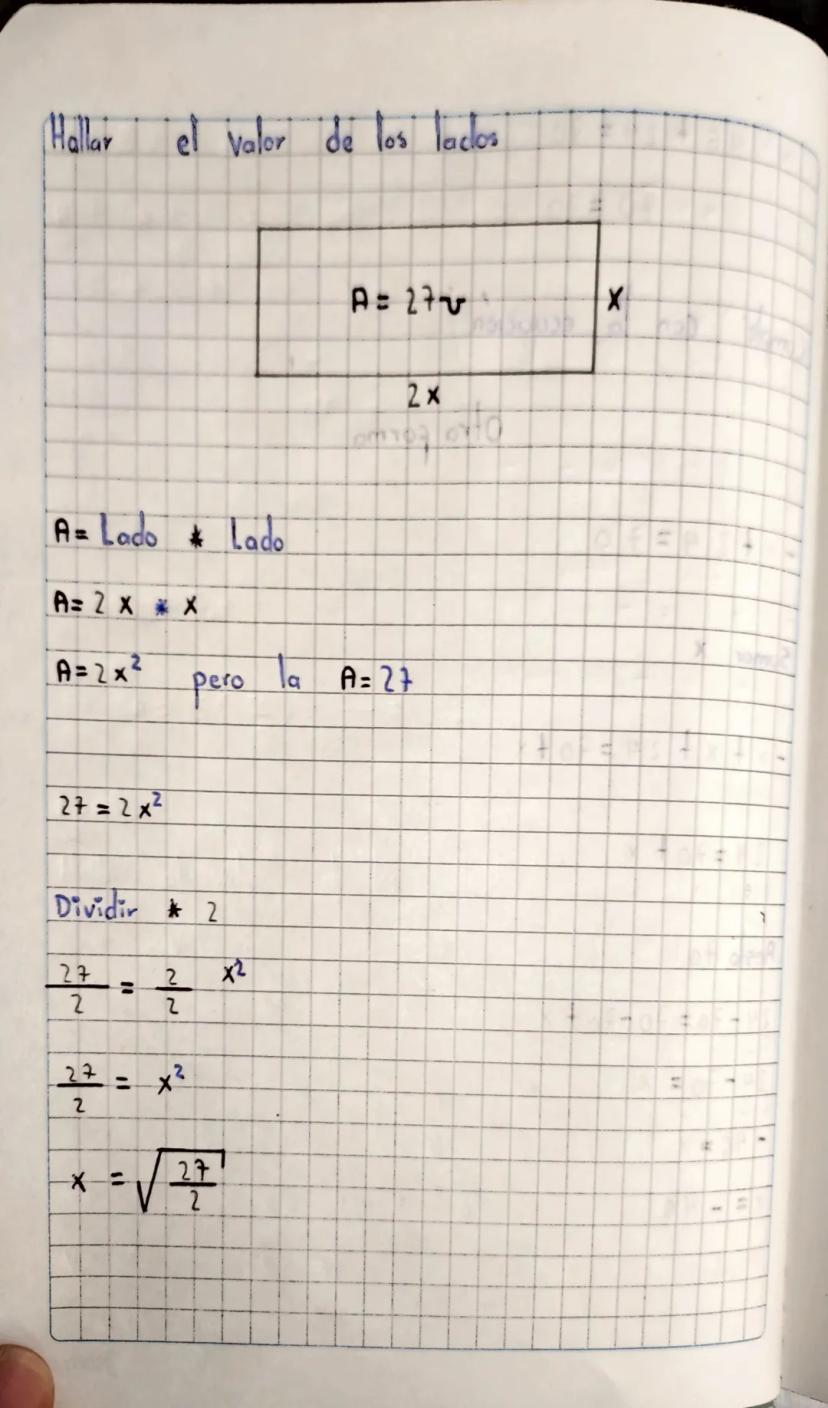 Hallar el valor de los lados
A = 27v
x
2x
A = Lado * Lado
A = 2x * x
A = 2x² pero la A = 27
27 = 2x²
Dividir * 2
27/2 = 2/2 x²
27/2 = x²
x = √27/2